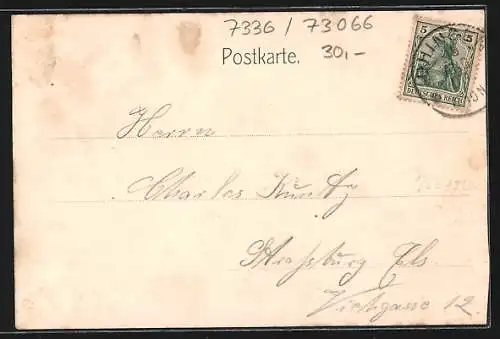 7336 / 73066
Postkarte.
30,-
5 5
DEUTSCHES REICH
Herrn
Charles Kuntz
Straßburg Els.
Viehgasse 12.